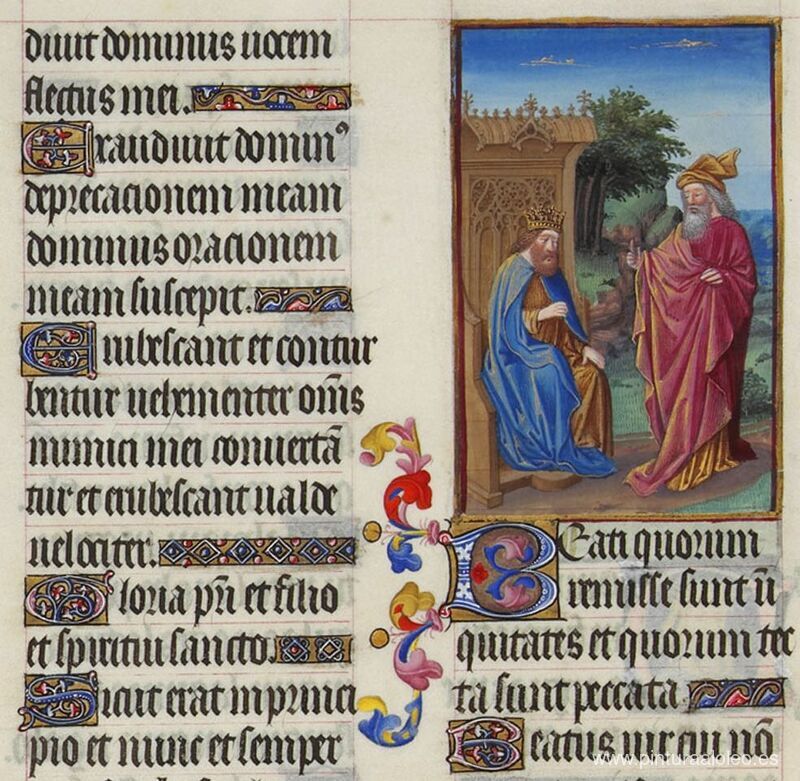 diuit dominus uocem
flectus mei.
Exaudiuit domin⁹
deprecacionem meam
dominus oracionem
meam suscepit.
Erubescant et contur
bentur uehementer om̄s
inimici mei conuertā
tur et erubescant ualde
uelociter.
Gloria pr̄i et filio
et spiritui sancto.
Sicut erat in princi
pio et nunc et semper
Beati quorum
remisse sunt ī
quitates et quorum tec
ta sunt peccata.
Beatus uir cui nō
www.pinturaaloleo.es